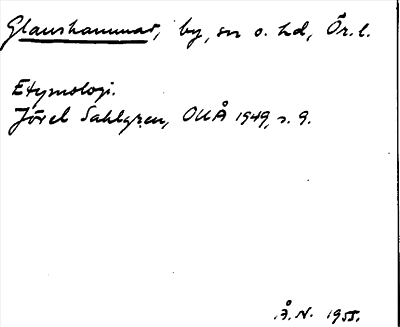 Glanshammar, by, sn o. hd, Ör. l.
Etymologi.
Jöel Sahlgren, OUÅ 1949, s. 9.
Å. N. 1955.